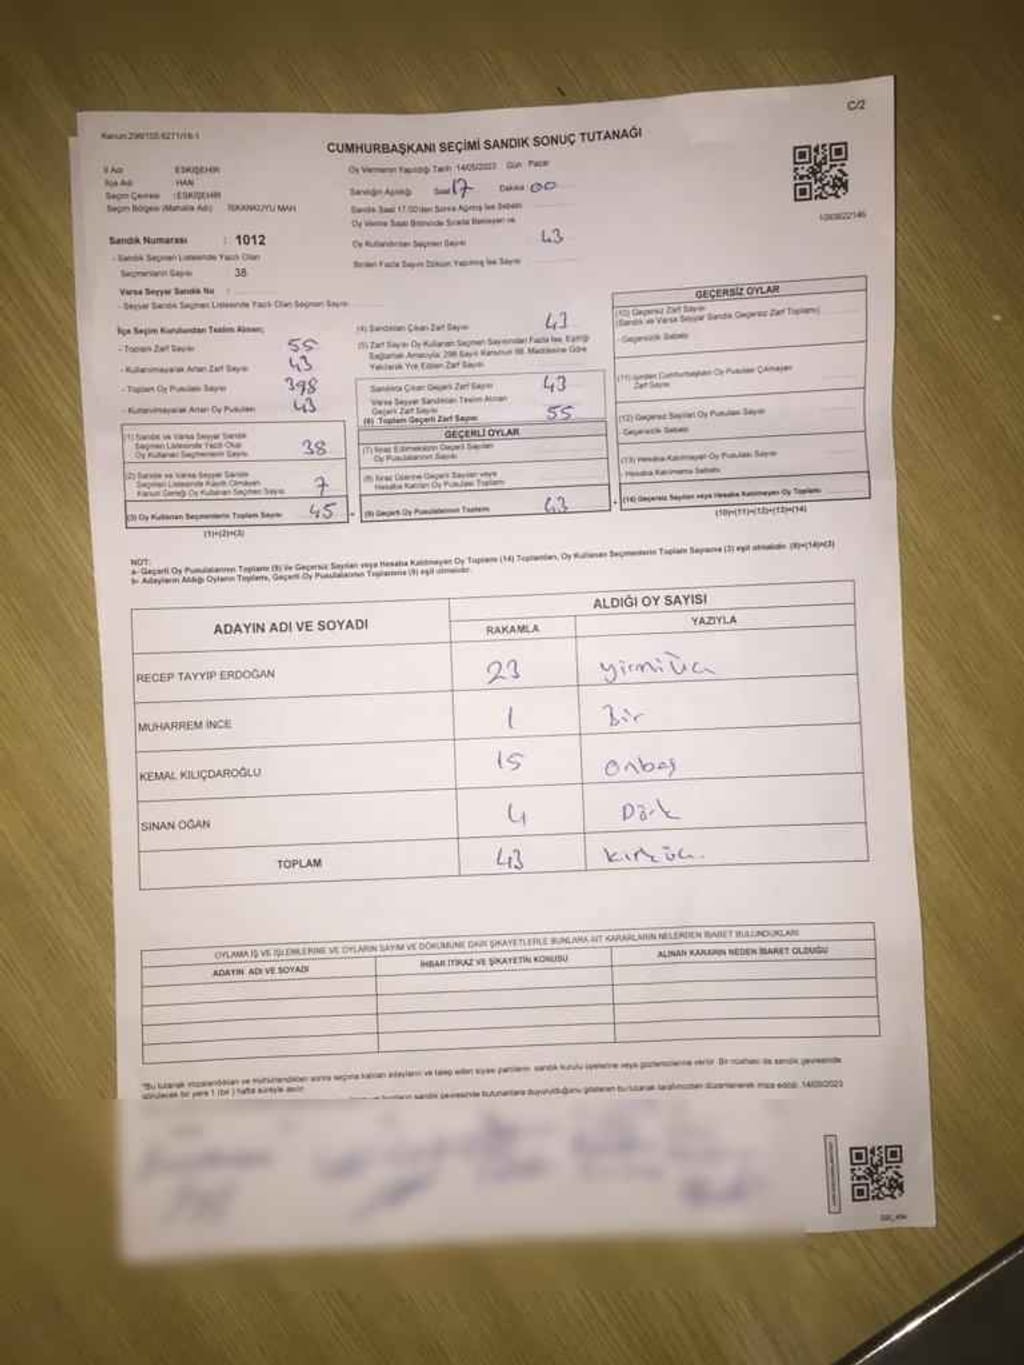 C/2
Kanun:298/105 6271/18-1
CUMHURBAŞKANI SEÇİMİ SANDIK SONUÇ TUTANAĞI
İl Adı : ESKİŞEHİR
İlçe Adı : HAN
Seçim Çevresi : ESKİŞEHİR
Seçim Bölgesi (Mahalle Adı) : İSKANKUYU MAH
Oy Vermenin Yapıldığı Tarih : 14/05/2023 Gün : Pazar
Sandığın Açıldığı Saat : 17 Dakika : 00
Sandık Saat 17.00'den Sonra Açılmış İse Sebebi
Oy Verme Saati Bitiminde Sırada Bekleyen ve
Oy Kullandırılan Seçmen Sayısı 43
Birden Fazla Sayım Döküm Yapılmış İse Sayısı
Sandık Numarası : 1012
- Sandık Seçmen Listesinde Yazılı Olan
Seçmenlerin Sayısı 38
Varsa Seyyar Sandık No :
- Seyyar Sandık Seçmen Listesinde Yazılı Olan Seçmen Sayısı
İlçe Seçim Kurulundan Teslim Alınan;
- Toplam Zarf Sayısı 55
- Kullanılmayarak Artan Zarf Sayısı 43
- Toplam Oy Pusulası Sayısı 398
- Kullanılmayarak Artan Oy Pusulası 43
(1) Sandık ve Varsa Seyyar Sandık
Seçmen Listesinde Yazılı Olup
Oy Kullanan Seçmenlerin Sayısı 38
(2) Sandık ve Varsa Seyyar Sandık
Seçmen Listesinde Kayıtlı Olmayan
Kanun Gereği Oy Kullanan Seçmen Sayısı 7
(3) Oy Kullanan Seçmenlerin Toplam Sayısı 45
(1)+(2)=(3)
(4) Sandıktan Çıkan Zarf Sayısı 43
(5) Zarf Sayısı Oy Kullanan Seçmen Sayısından Fazla İse, Eşitliği
Sağlamak Amacıyla; 298 Sayılı Kanunun 98. Maddesine Göre
Yakılarak Yok Edilen Zarf Sayısı
Sandıkta Çıkan Geçerli Zarf Sayısı 43
Varsa Seyyar Sandıktan Teslim Alınan
Geçerli Zarf Sayısı
(6) Toplam Geçerli Zarf Sayısı 55
GEÇERLİ OYLAR
(7) İtiraz Edilmeksizin Geçerli Sayılan
Oy Pusulalarının Sayısı
(8) İtiraz Üzerine Geçerli Sayılan veya
Hesaba Katılan Oy Pusulası Toplamı
(9) Geçerli Oy Pusulalarının Toplamı 43
GEÇERSİZ OYLAR
(10) Geçersiz Zarf Sayısı
(Sandık ve Varsa Seyyar Sandık Geçersiz Zarf Toplamı)
- Geçersizlik Sebebi
(11) İçinden Cumhurbaşkanı Oy Pusulası Çıkmayan
Zarf Sayısı
(12) Geçersiz Sayılan Oy Pusulası Sayısı
- Geçersizlik Sebebi
(13) Hesaba Katılmayan Oy Pusulası Sayısı
- Hesaba Katılmama Sebebi
(14) Geçersiz Sayılan veya Hesaba Katılmayan Oy Toplamı
(10)+(11)+(12)+(13)=(14)
NOT:
a- Geçerli Oy Pusulalarının Toplamı (9) ile Geçersiz Sayılan veya Hesaba Katılmayan Oy Toplamı (14) Toplamları, Oy Kullanan Seçmenlerin Toplam Sayısına (3) eşit olmalıdır. (9)+(14)=(3)
b- Adayların Aldığı Oyların Toplamı, Geçerli Oy Pusulalarının Toplamına (9) eşit olmalıdır.
ADAYIN ADI VE SOYADI
ALDIĞI OY SAYISI
RAKAMLA YAZIYLA
RECEP TAYYİP ERDOĞAN 23 yirmiüç
MUHARREM İNCE 1 Bir
KEMAL KILIÇDAROĞLU 15 onbeş
SİNAN OĞAN 4 Dört
TOPLAM 43 kırküç.
OYLAMA İŞ VE İŞLEMLERİNE VE OYLARIN SAYIM VE DÖKÜMÜNE DAİR ŞİKAYETLERLE BUNLARA AİT KARARLARIN NELERDEN İBARET BULUNDUKLARI
ADAYIN ADI VE SOYADI İHBAR İTİRAZ VE ŞİKAYETİN KONUSU ALINAN KARARIN NEDEN İBARET OLDUĞU
"Bu tutanak imzalandıktan ve mühürlendikten sonra seçime katılan adayların ve talep eden siyasi partilerin sandık kurulu üyelerine veya gözlemcilerine verilir. Bir nüshası da sandık çevresinde
görülecek bir yere 1 (bir) hafta süreyle asılır.
sandık çevresinde bulunanlara duyurulduğunu gösteren bu tutanak tarafımızdan düzenlenerek imza edildi. 14/05/2023